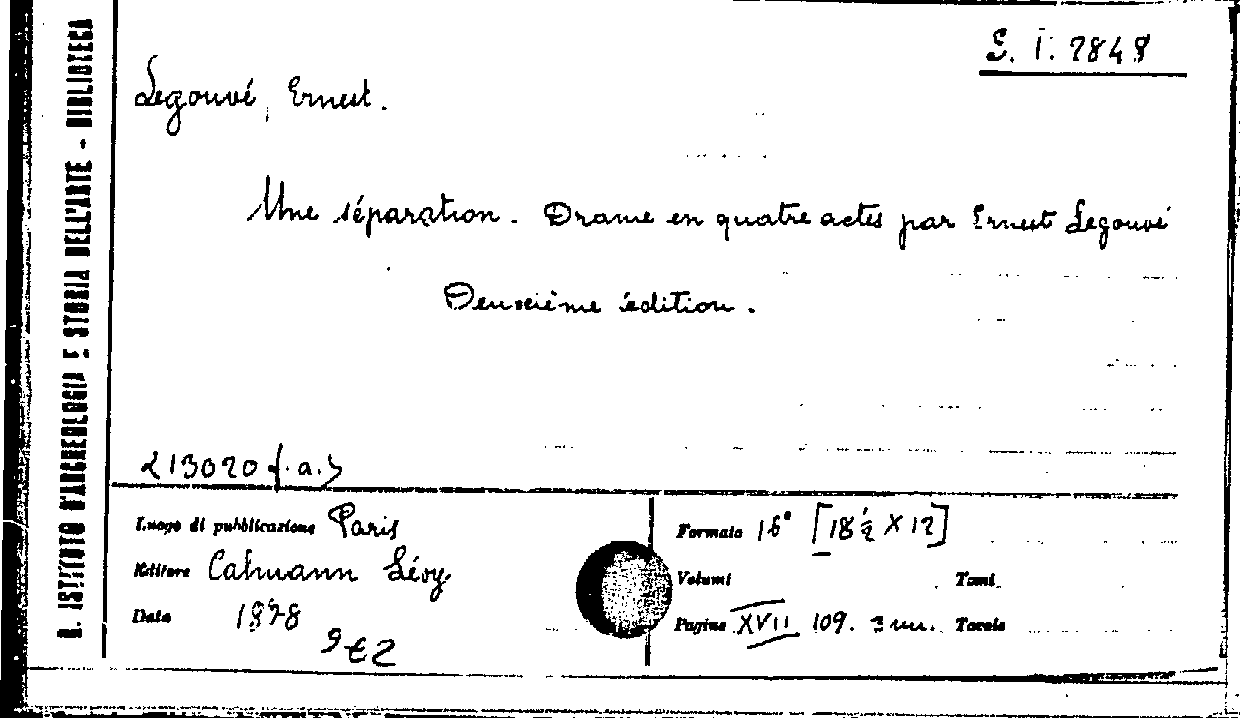 R. ISTITUTO D'ARCHEOLOGIA E STORIA DELL'ARTE - BIBLIOTECA
S. T. 7848
Legouvé, Ernest.
Une séparation. Drame en quatre actes par Ernest Legouvé
Deuxième édition.
213020 (.a.)
Luogo di pubblicazione Paris
Formato 16° [18 ½ X 12]
Editore Calmann Lévy
Volumi Tomi
Data 1878
Pagine XVII 109. 3 nn. Tavole